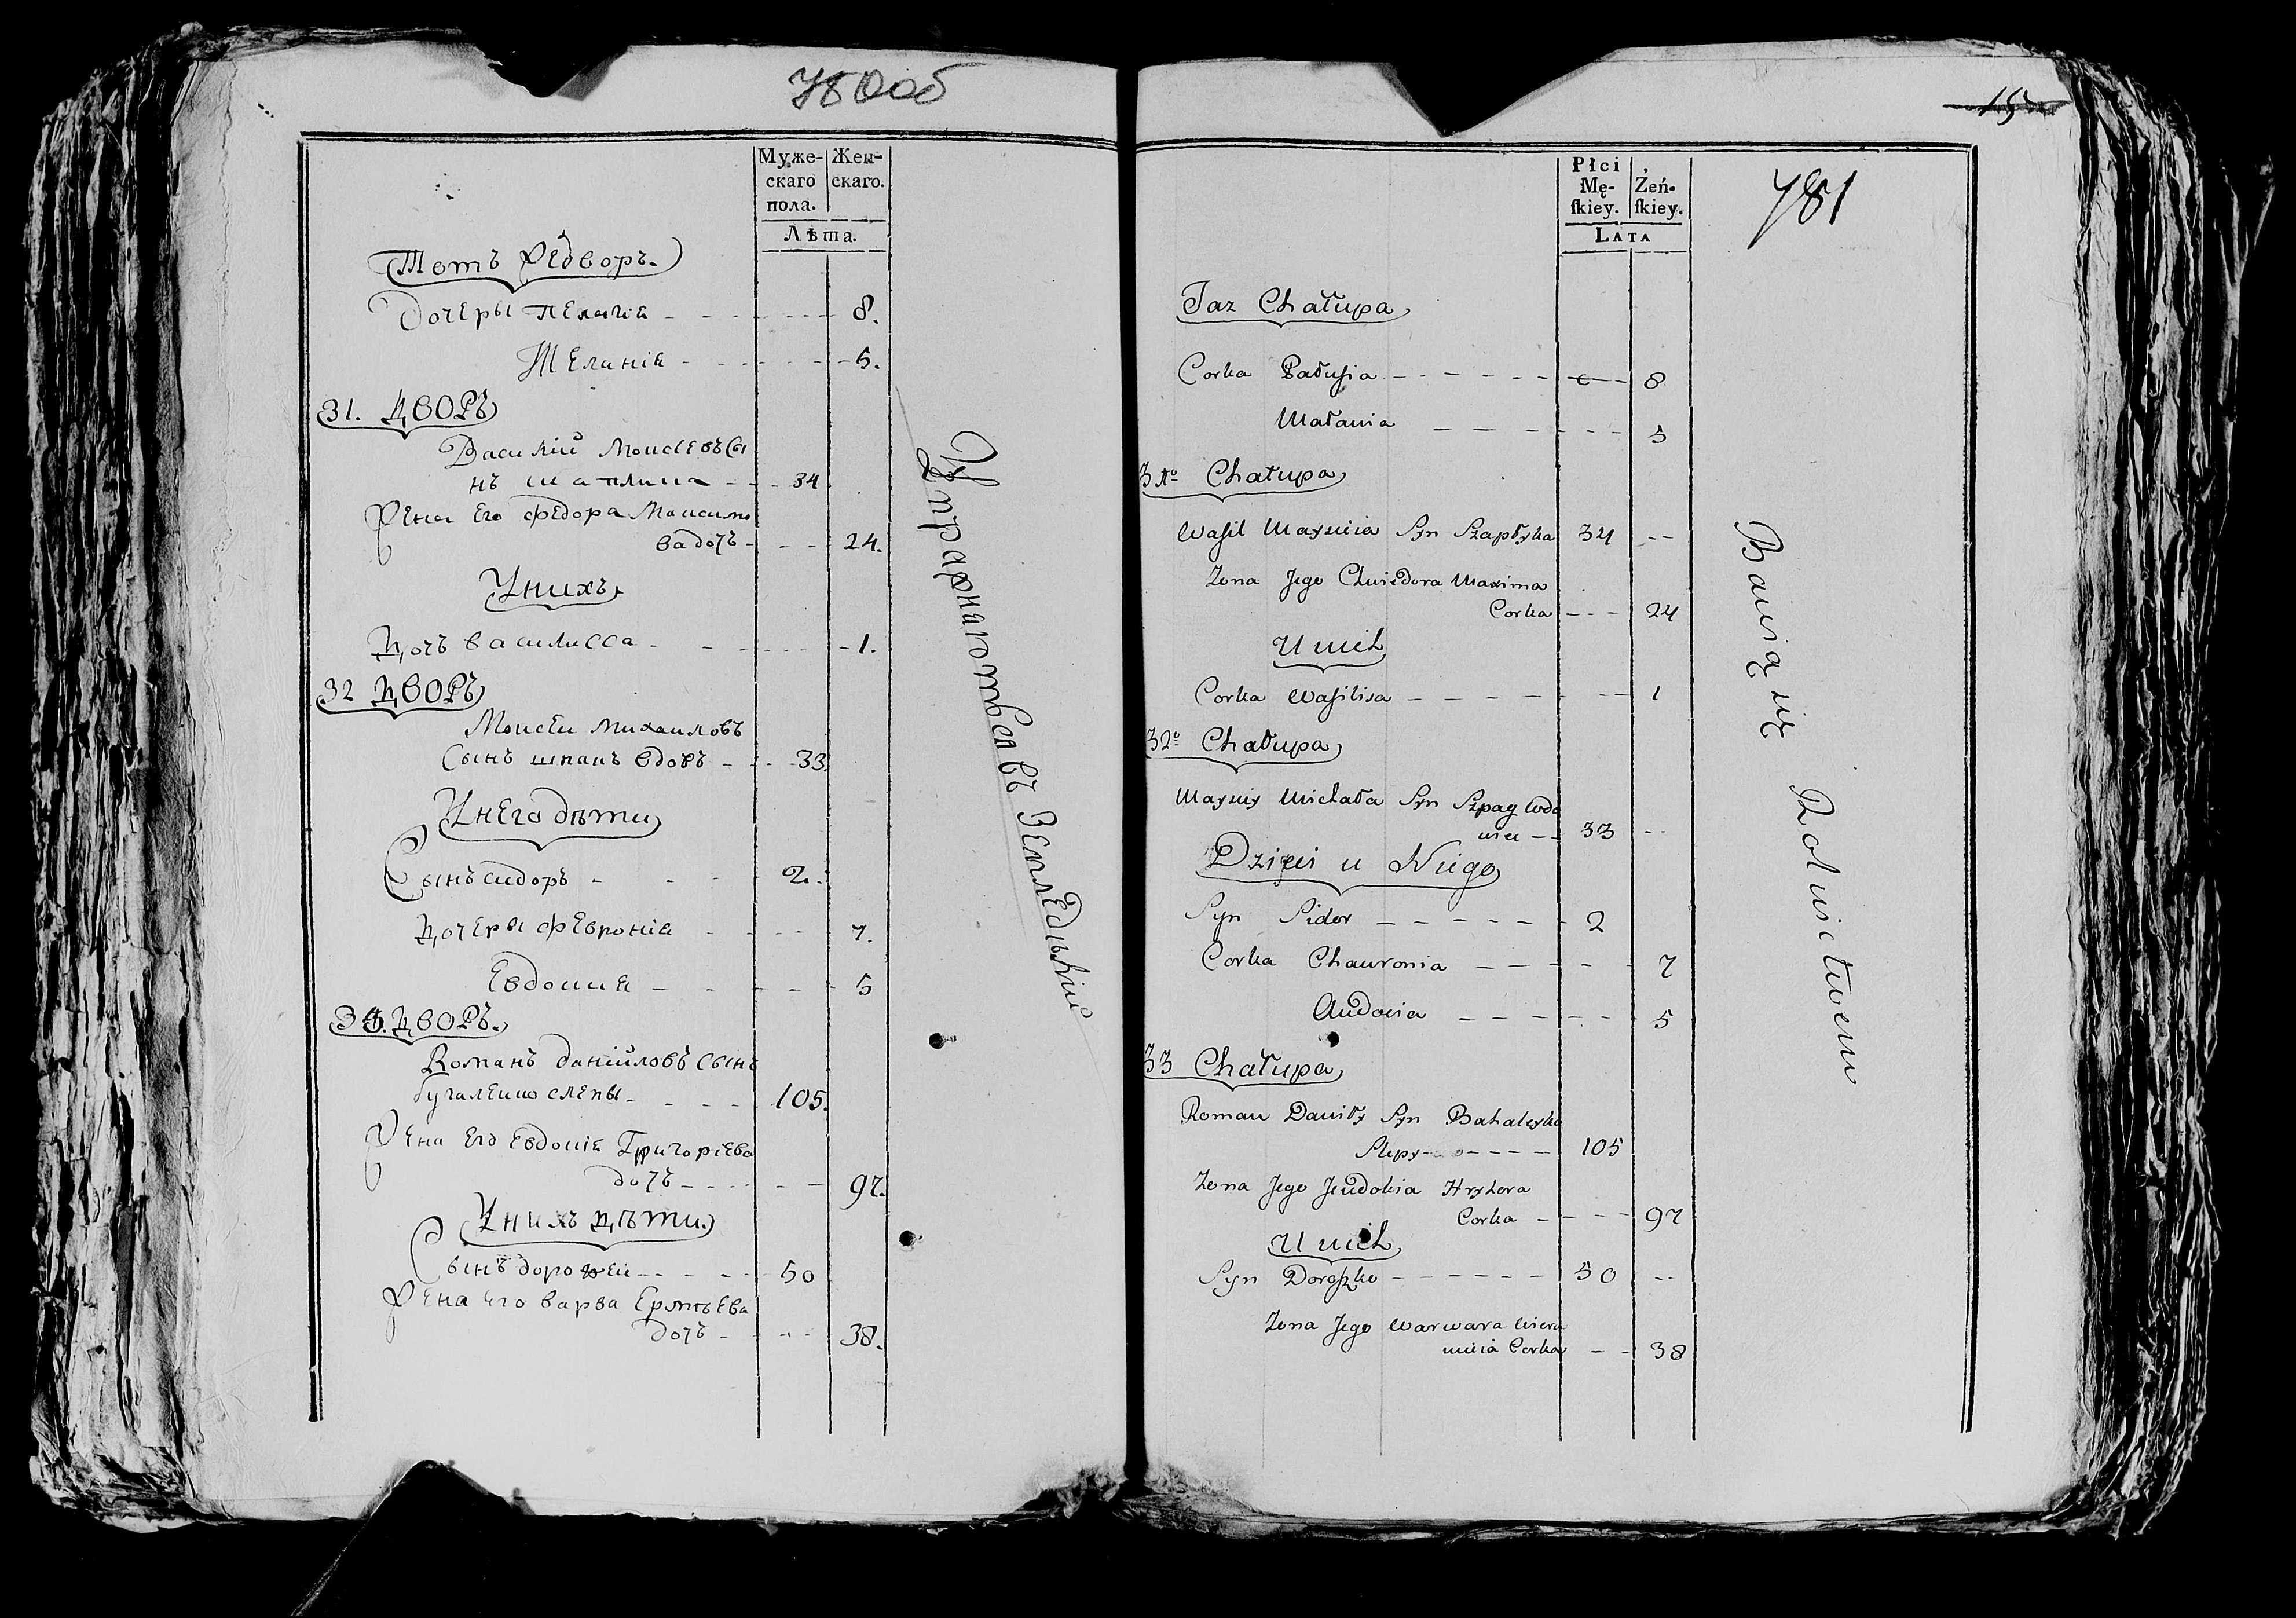 780об
Муже-
скаго
пола.
Жен-
скаго.
Лѣта.
Тотъ же дворъ.
Дочеры Пелагiя 8.
Меланiя 5.
31. Дворъ
Василiй Моисеевъ Сы
нъ шаплыка 34
Жена Его Федора Максимо
ва дочь 24.
У нихъ
Дочь василисса 1.
32 Дворъ
Моисей михаиловъ
Сынъ шпакъ вдовъ 33.
У него дѣти
Сынъ сидоръ 2.
Дочеры февронiя 7.
Евдокия 5
33. Дворъ.
Романъ данiиловъ Сынъ
слепы 105.
Жена Его Евдокiя Григорiева
дочь 97.
У нихъ дѣти.
Сынъ дорофей 50
Жена Его варва Ермѣева
дочь 38.
въ Земледѣлiе
781
Płci
Mę-
ſkiey.
Żeń-
ſkiey.
LATA
Taż Chałupa
Corka Pałusia 8
Małania 5
31o Chałupa
Wasil Mayzieia Syn Szapłyka 34
Zona Jego Chwiedora Maxima
Corka 24
U nich
Corka Wasilisa 1
32o Chałupa
Mayziey Michała Syn Szpag Wdo
wiec 33
Dzieci u Niego
Syn Sidor 2
Corka Chauronia 7
Audocia 5
33 Chałupa
Roman Daniły Syn Bahaleyka
Slepy 105
Zona Jego Jeudokia Hryhora
Corka 97
U nich
Syn Doroszko 50
Zona Jego Warwara
Corka 38
Bawią się Rolnictwem